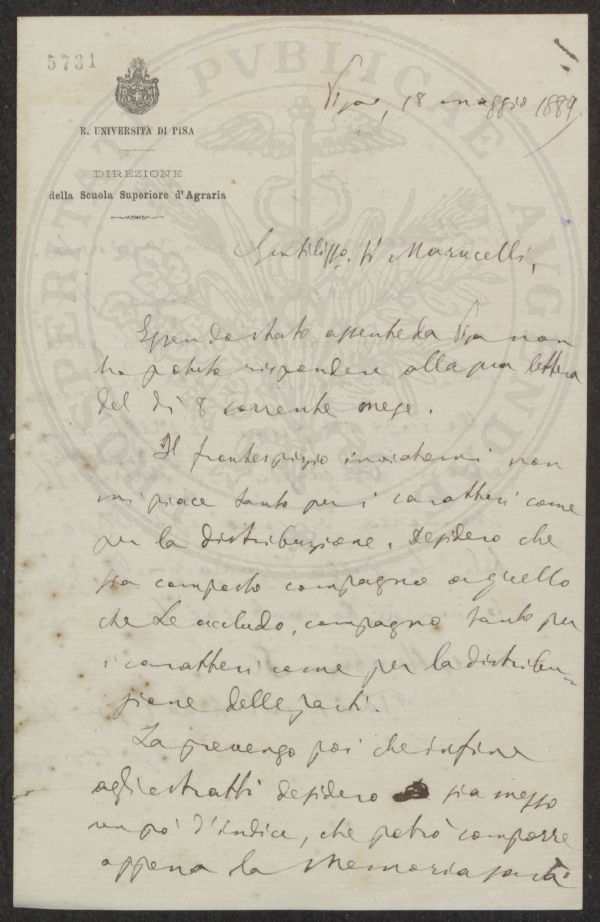 5731
R. UNIVERSITÀ DI PISA
DIREZIONE
della Scuola Superiore d'Agraria
Pisa, 18 maggio 1889
Marucelli,
Essendo stato assente da Pisa non
ho potuto rispondere alla sua lettera
del dì 8 corrente mese.
Il frontespizio inviatomi non
mi piace tanto per i caratteri come
per la distribuzione. Desidero che
sia composto compagno a quello
che Le accludo, compagno tanto per
i caratteri come per la distribu-
zione delle parti.
La prevengo poi che infine
agli estratti desidero sia messo
un pò d'indice, che potrò comporre
appena la Memoria sarà
PROSPERITATI PVBLICAE AVGENDAE